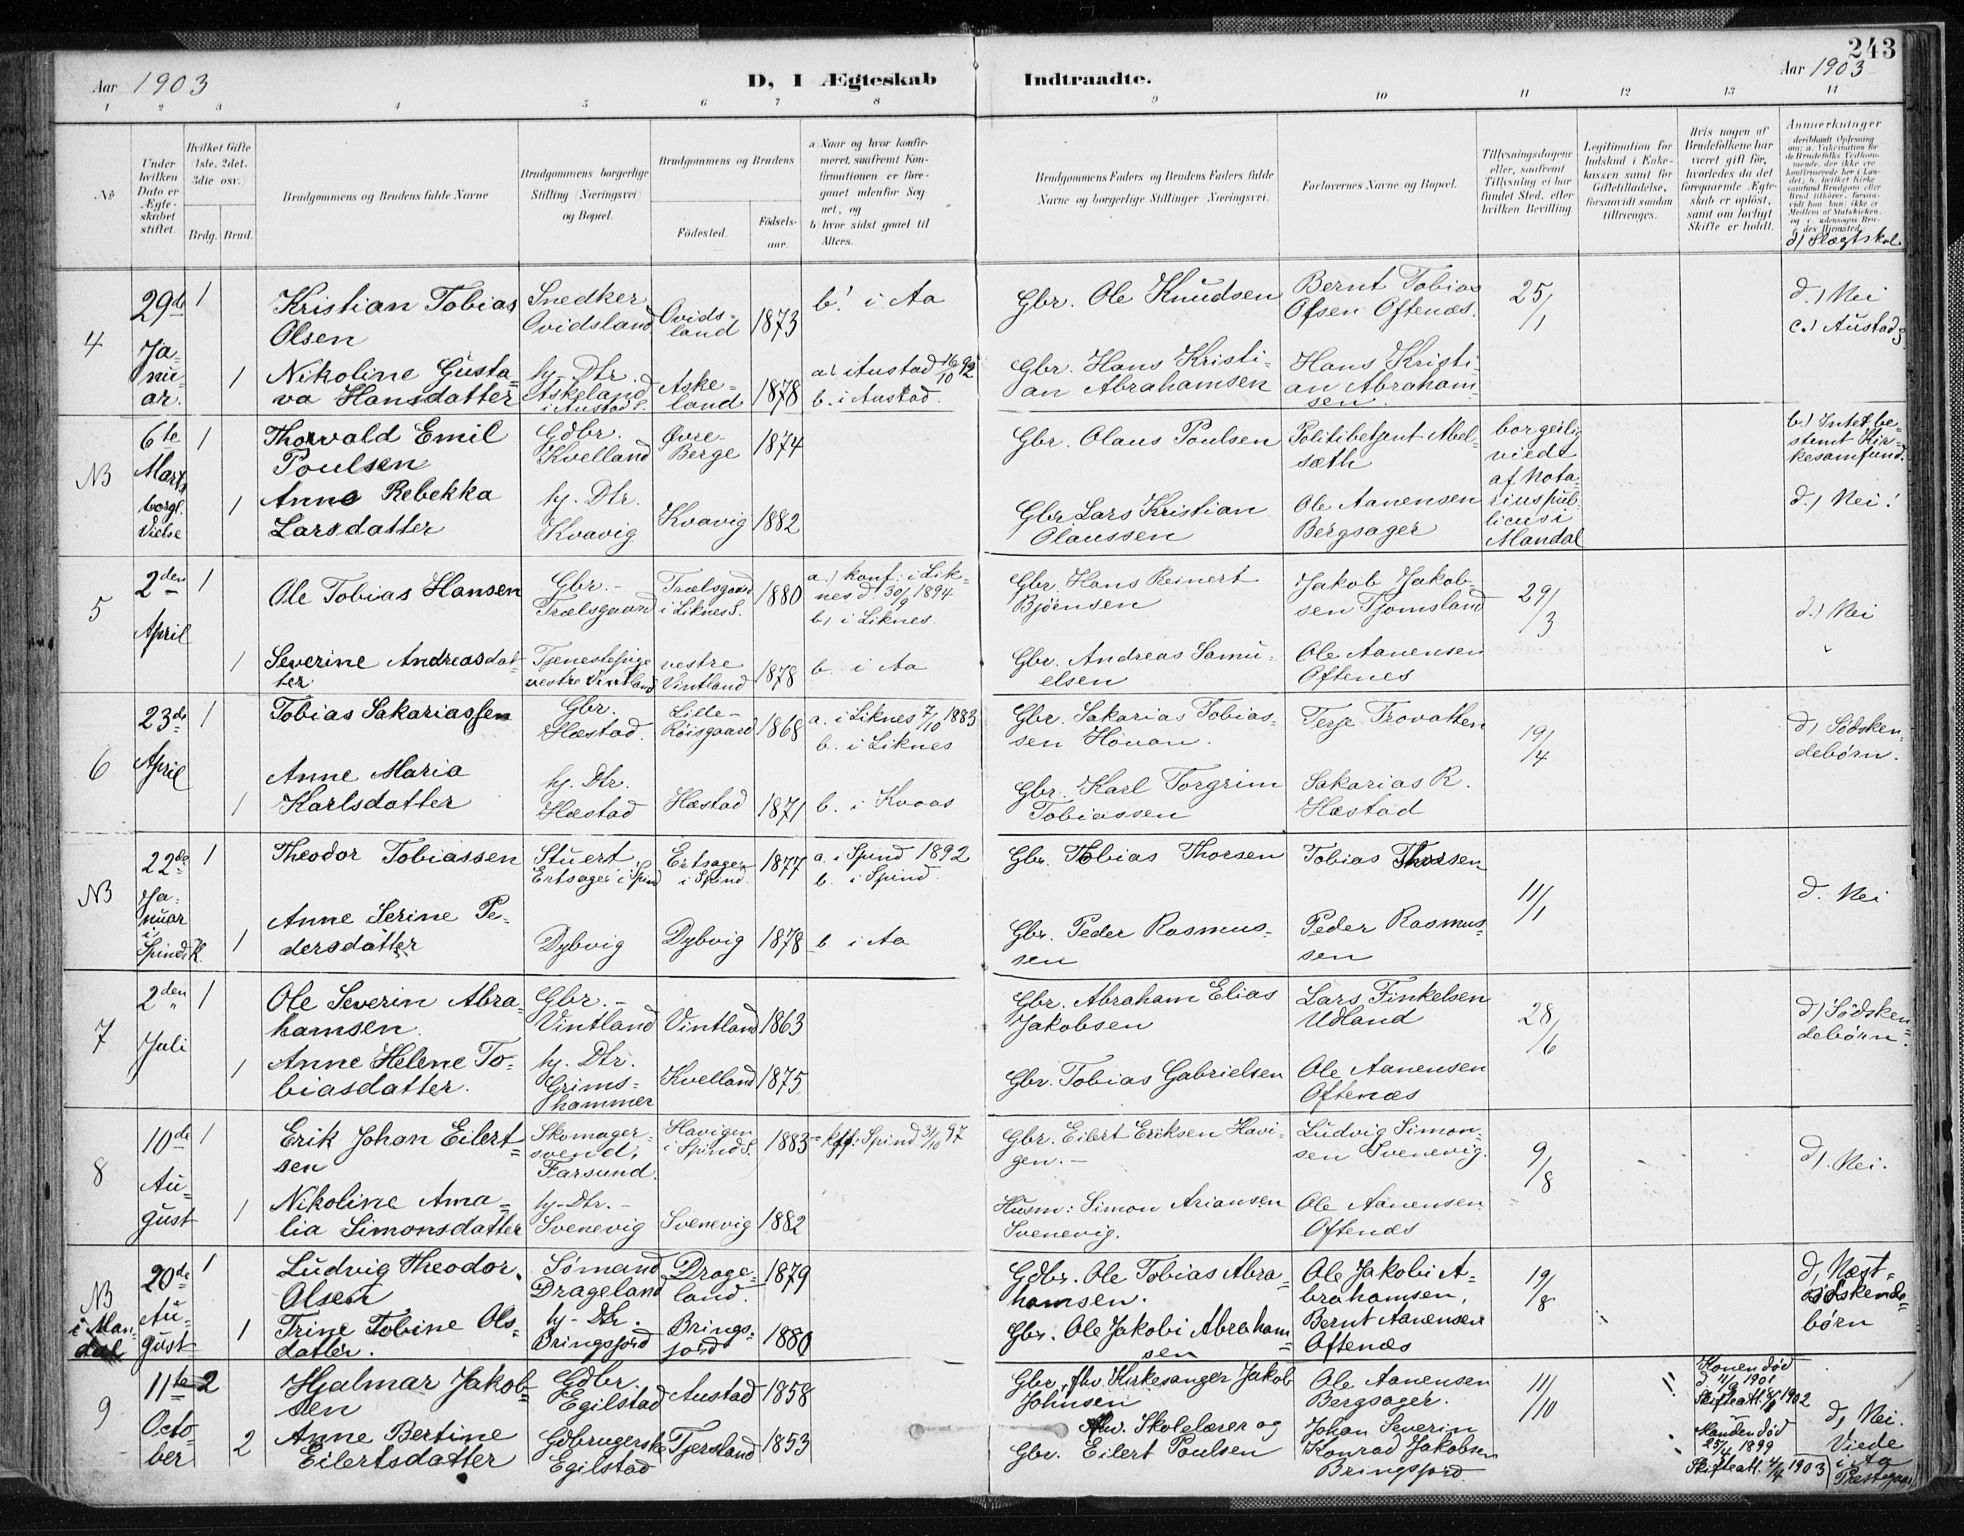 243
Aar 1903
D, I Ægteskab Indtraadte.
Aar 1903
1 2 3 4 5 6 7 8 9 10 11 12 13 14
№
Under hvilken Dato er Ægteskabet stiftet.
Hvilket Gifte 1ste, 2det, 3die osv.)
Brdg. Brud.
Brudgommens og Brudens fulde Navne
Brudgommens borgerlige Stilling (Næringsvei) og Bopæl.
Brudgommens og Brudens
Fødested.
Fødselsaar.
a Naar og hvor konfirmeret, saafremt Konfirmationen er foregaaet udenfor Sognet, og
b hvor sidst gaaet til Alters.
Brudgommens Faders og Brudens Faders fulde Navne og borgerlige Stillinger Næringsvei).
Forlovernes Navne og Bopæl.
Tillysningsdagene eller, saafremt Tillysning ei har fundet Sted, efter hvilken Bevilling.
Legitimation for Indskud i Enkekassen samt for Giftetilladelse, forsaavidt saadan tiltrænges.
Hvis nogen af Brudefolkene har været gift før, hvorledes da det foregaaende Ægteskab er opløst, samt om lovligt Skifte er holdt.
Anmerkninger
d) Slægtskab
4
29de Januar.
1
Kristian Tobias Olsen
Snedker Ovidsland
Ovidsland
1873
b! i Aa
Gbr. Ole Knudsen
Bernt Tobias Olsen Oftenæs.
25/1
d.) Nei
c.) Austad S.
1
Nikoline Gustava Hansdatter
hj. Dtr. Askeland i Austad S.
Askeland
1878
a! i Austad 16/10 92
b. i Austad.
Gbr. Hans Kristian Abrahamsen
Hans Kristian Abrahamsen.
NB
6te Marts borgl. Vielse
1
Thorvald Emil Poulsen
Gdbr. Kvelland
Øvre-Berge
1874
Gbr. Olaus Poulsen
Politibetjent Abelsæth
borgerlig viedt af Notarius publicus i Mandal
b.) Intet bestemt Kirkesamfund.
1
Anne Rebekka Larsdatter
hj. Dtr. Kvavig
Kvavig
1882
Gbr Lars Kristian Olaussen
Ole Aanensen Bergsager
d.) Nei!
5
2den April
1
Ole Tobias Hansen
Gbr.- Trælsgaard
Trælsgaard i Liknes S.
1880
a.) konf. i Liknes d 30/9 1894
b) i Liknes.
Gbr. Hans Reinert Bjørnsen
Jakob Jakobsen Tjomsland
29/3
d.) Nei
1
Severine Andreasdatter
Tjenestepige vestre Vintland
vestre Vintland
1878
b. i Aa
Gbr. Andreas Samuelsen
Ole Aanensen Oftenes
6
23de April
1
Tobias Sakariassen
Gbr. Hæstad.
Lille-Røisgaard
1868
a. i Liknes 7/10 1883
b. i Liknes
Gbr. Sakarias Tobiassen Hovan.
Terje Trovatten
19/4
d) Sødskendebørn.
1
Anne Maria Karlsdatter
hj. Dtr. Hæstad
Hæstad
1871
b. i Kvaas
Gbr. Karl Torgrim Tobiassen
Sakarias R. Hæstad
NB
22de Januar i Spinds K.
1
Theodor Tobiassen
Stuert Ertsager i Spind
Ertsager i Spind.
1877
a. i Spind 1892
b. i Spind.
Gbr. Tobias Thorsen
Tobias Thorsen
11/1
d. Nei
1
Anne Serine Pedersdatter
Dybvig
Dybvig
1878
b. i Aa
Gbr. Peder Rasmussen
Peder Rasmussen
7
2den Juli
1
Ole Severin Abrahamsen.
Gbr.- Vintland
Vintland
1863
Gbr. Abraham Elias Jakobsen
Lars Finkelsen Udland
28/6
d) Sødskendebørn.
1
Anne Helene Tobiasdatter.
hj. Dtr. Grimshammer
Kvelland
1875
Gbr. Tobias Gabrielsen
Ole Aanensen Oftenæs
8
10de August
1
Erik Johan Eilertsen
Skomagersvend, Farsund.
Havigen i Spind S.
1883
Kff: Spind 31/10 97
Gbr. Eilert Eriksen Havigen.-
Ludvig Simonsen Svenevig.
9/8
d). Nei.
1
Nikoline Amalia Simonsdatter
hj.-Dtr.- Svenevig
Svenevig
1882
Husm: Simon Ariansen Svenevig.
Ole Aanensen Oftenæs
NB i Mandal
20de August
1
Ludvig Theodor Olsen
Sømand Drageland
Drageland.
1879
Gdbr. Ole Tobias Abrahamsen.
Ole Jakobi Abrahamsen,
19/8
d) Næstsødskendebørn
1
Trine Tobine Olsdatter.
hj-Dtr. Bringsjord
Bringsjord
1880
Gbr. Ole Jakobi Abrahamsen
Bernt Aanensen Oftenæs
9
11te October
2
Hjalmar Jakobsen
Gdbr. Egilstad
Austad
1858
Gbr, fhv. Kirkesanger Jakob Johnsen
Ole Aanensen Bergsager.
11/10
Konen død d 11/9 1901
Skifteatt. 1902
d, Nei.
Viede i Aa Prestegaard
2
Anne Bertine Eilertsdatter
Gdbrugerske Egilstad
Tjersland
1853
fhv. Skolelærer og Gbr. Eilert Poulsen
Johan Severin Konrad Jakobsen Bringsjord
Manden død 25/4 1899
Skifteatt. 4/4 1903